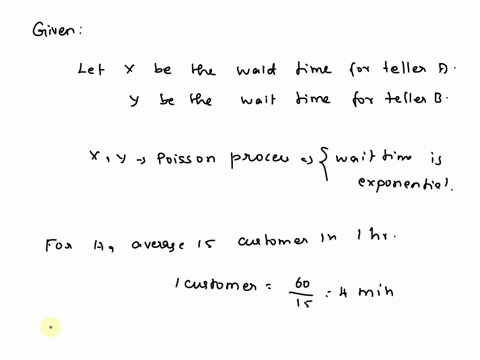 Given:
Let X be the waid time for teller A.
Y be the wait time for teller B.
X, Y → Poisson proces ⇒ { wait time is
exponential.
For A, average 15 customer in 1 hr.
1 customer = 60/15 = 4 min